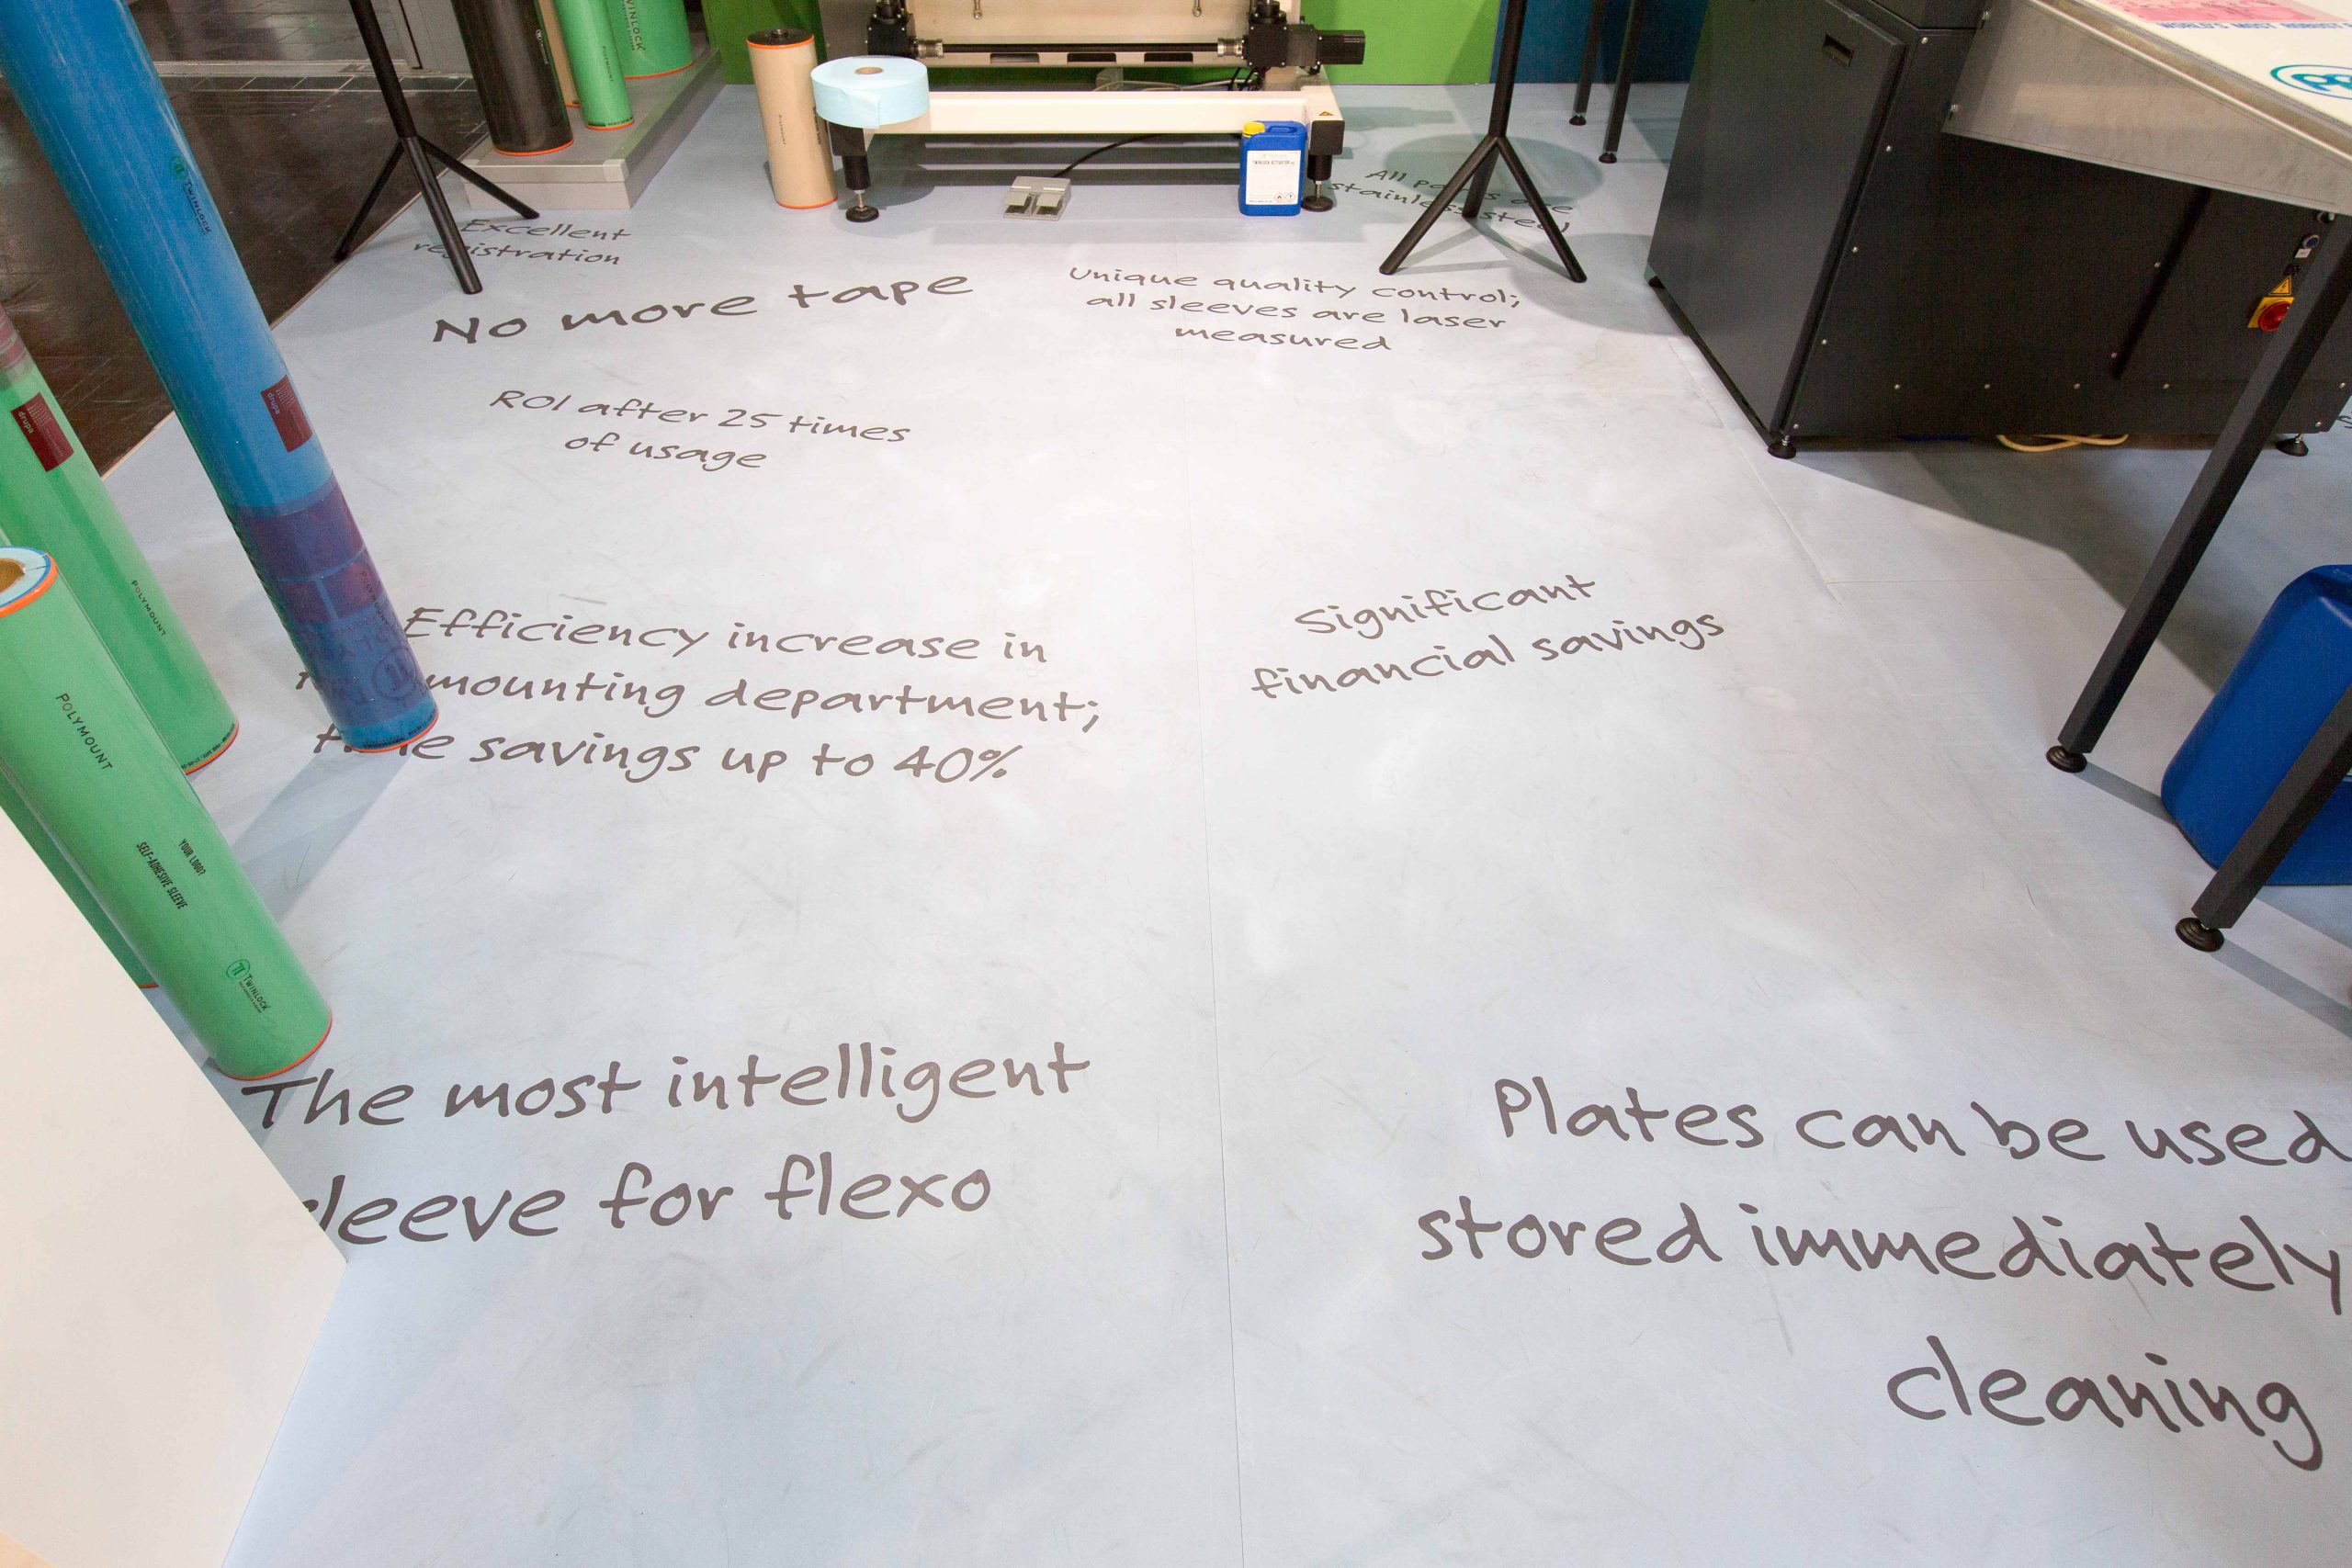 TWINLOCK
POLYMOUNT
WORLD'S MOST ROBUST
TWINLOCK
TWINLOCK ACTIVATOR
All parts are
stainless steel
Excellent
registration
No more tape
Unique quality control;
all sleeves are laser
measured
ROI after 25 times
of usage
drupa
drupa
POLYMOUNT
Efficiency increase in
mounting department;
time savings up to 40%
Significant
financial savings
POLYMOUNT
YOUR LOGO?
SELF-ADHESIVE SLEEVE
TWINLOCK
The most intelligent
sleeve for flexo
Plates can be used
stored immediately
cleaning